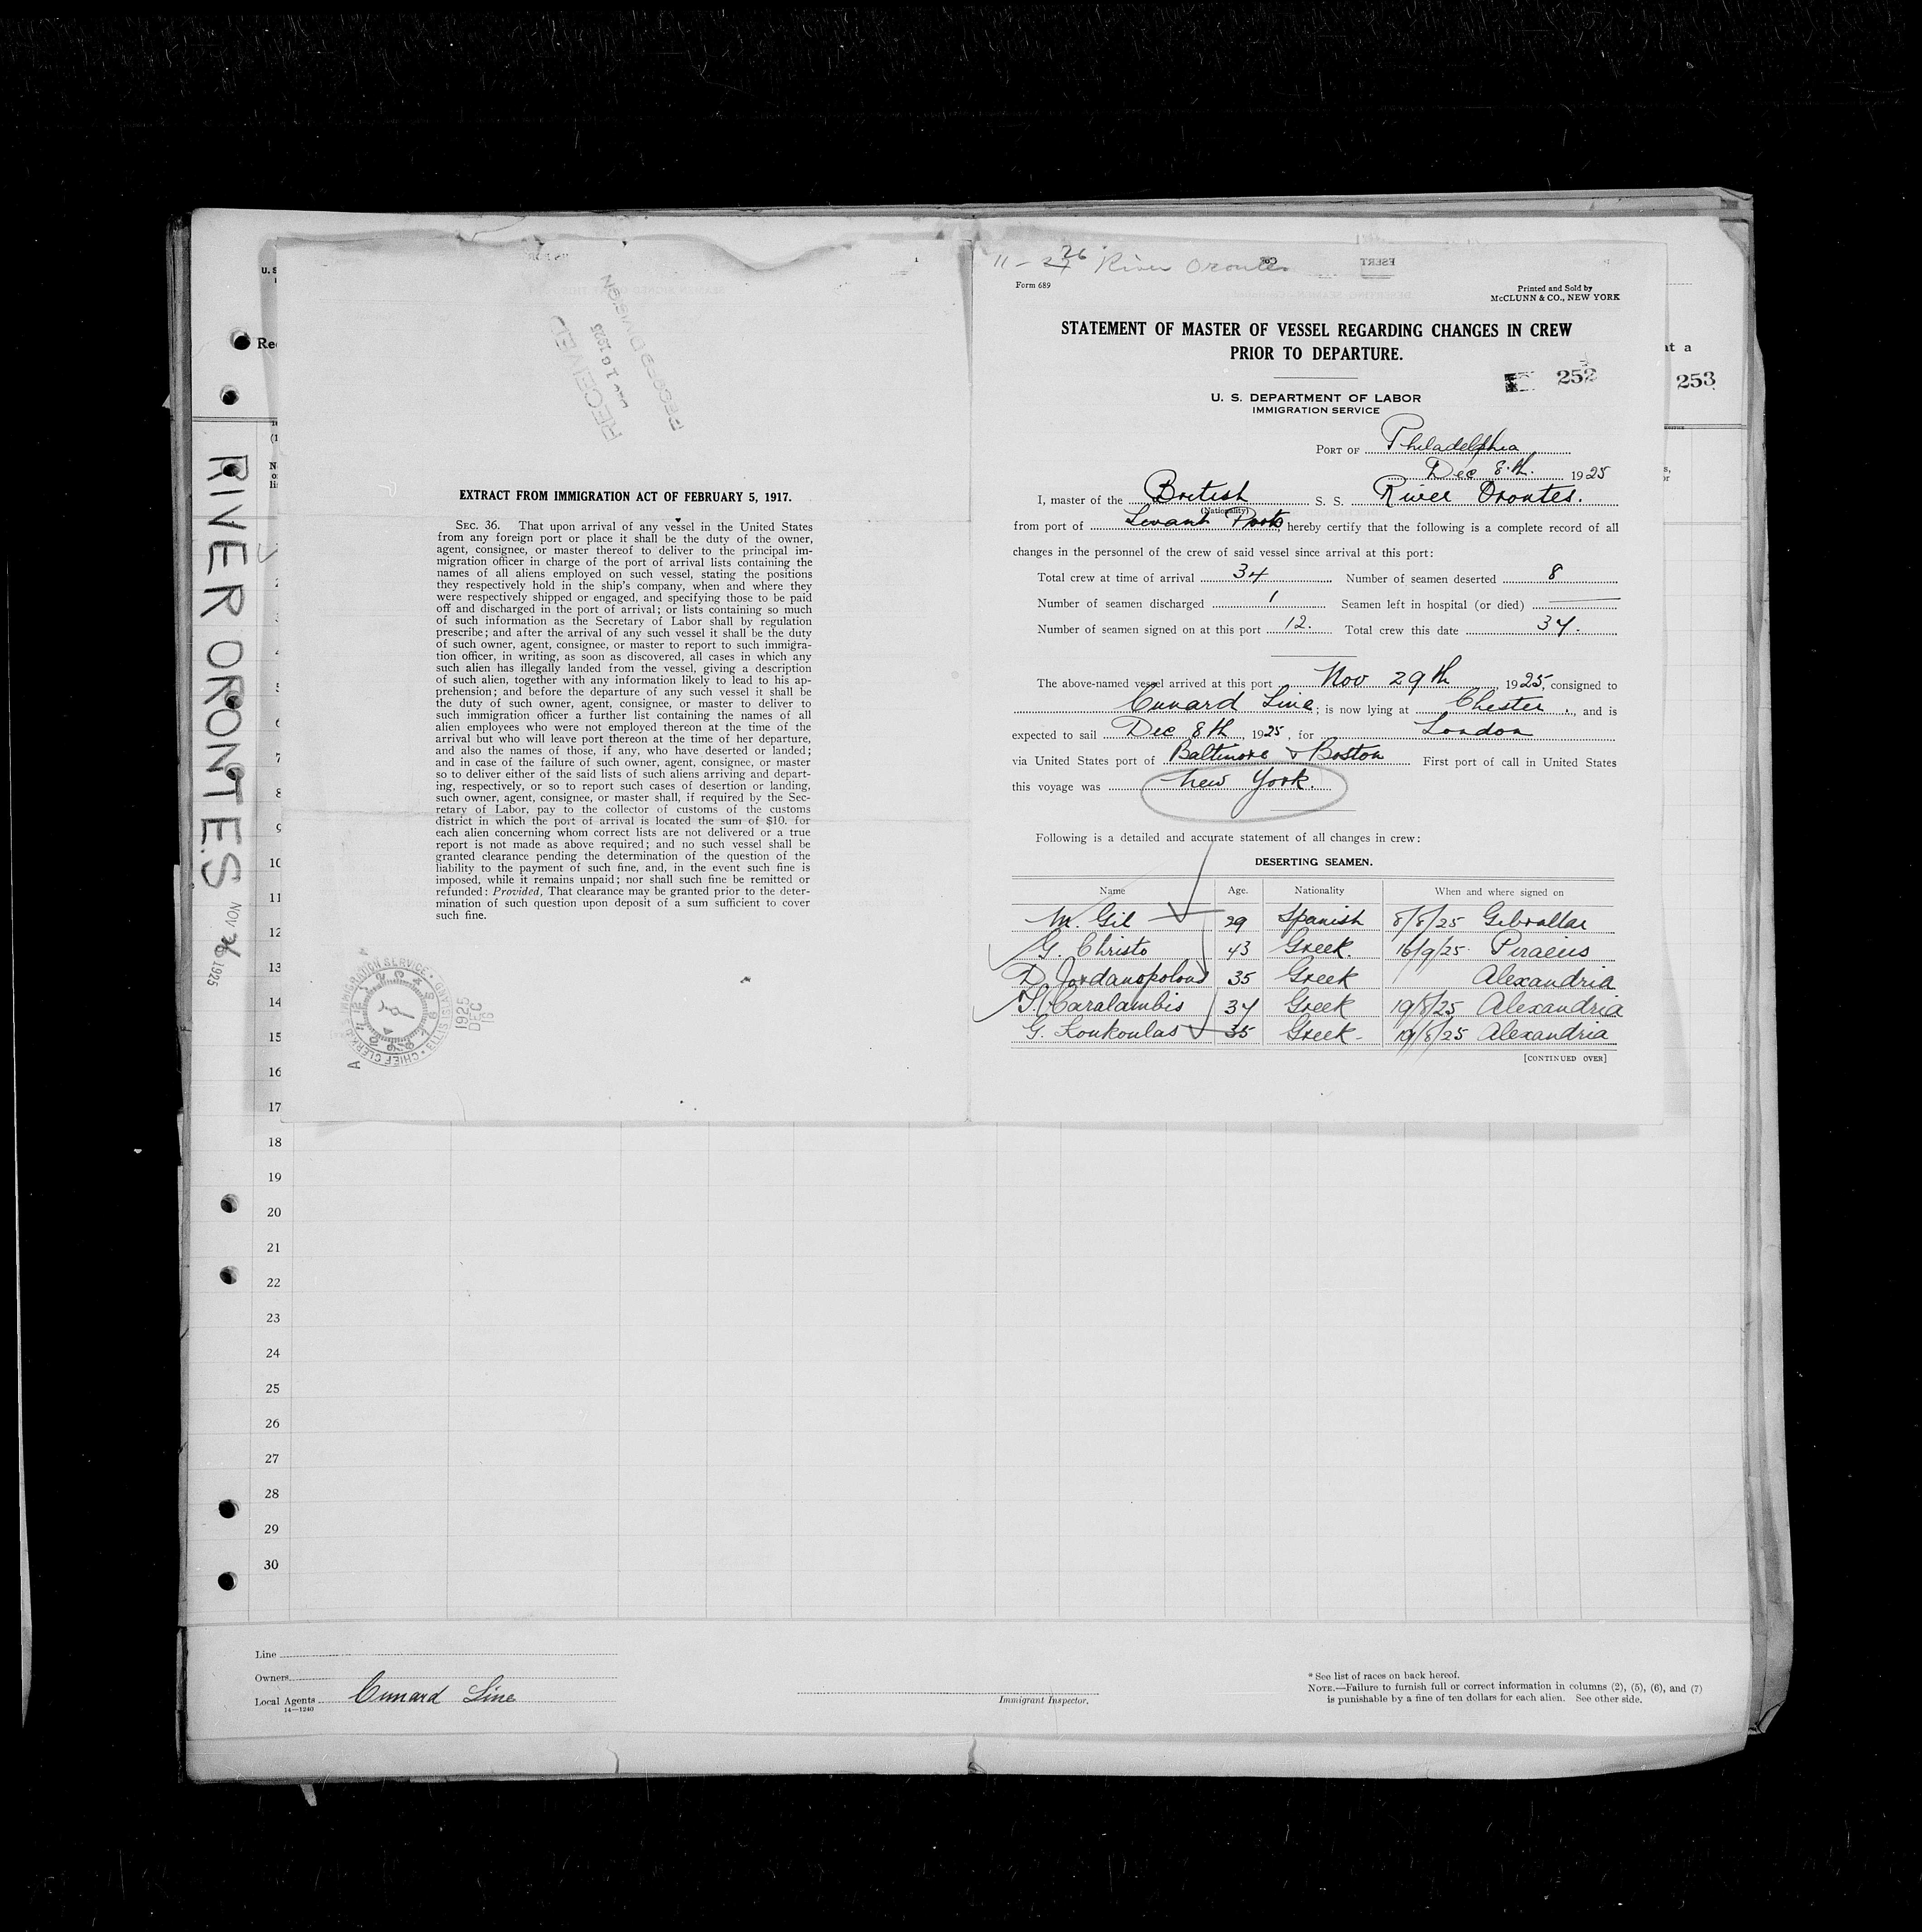 RIVER ORONTES NOV 26 1925
RECEIVED
1925
EXTRACT FROM IMMIGRATION ACT OF FEBRUARY 5, 1917.
SEC. 36. That upon arrival of any vessel in the United States
from any foreign port or place it shall be the duty of the owner,
agent, consignee, or master thereof to deliver to the principal im-
migration officer in charge of the port of arrival lists containing the
names of all aliens employed on such vessel, stating the positions
they respectively hold in the ship's company, when and where they
were respectively shipped or engaged, and specifying those to be paid
off and discharged in the port of arrival; or lists containing so much
of such information as the Secretary of Labor shall by regulation
prescribe; and after the arrival of any such vessel it shall be the duty
of such owner, agent, consignee, or master to report to such immigra-
tion officer, in writing, as soon as discovered, all cases in which any
such alien has illegally landed from the vessel, giving a description
of such alien, together with any information likely to lead to his ap-
prehension; and before the departure of any such vessel it shall be
the duty of such owner, agent, consignee, or master to deliver to
such immigration officer a further list containing the names of all
alien employees who were not employed thereon at the time of the
arrival but who will leave port thereon at the time of her departure,
and also the names of those, if any, who have deserted or landed;
and in case of the failure of such owner, agent, consignee, or master
so to deliver either of the said lists of such aliens arriving and depart-
ing, respectively, or so to report such cases of desertion or landing,
such owner, agent, consignee, or master shall, if required by the Sec-
retary of Labor, pay to the collector of customs of the customs
district in which the port of arrival is located the sum of $10. for
each alien concerning whom correct lists are not delivered or a true
report is not made as above required; and no such vessel shall be
granted clearance pending the determination of the question of the
liability to the payment of such fine, and, in the event such fine is
imposed, while it remains unpaid; nor shall such fine be remitted or
refunded: Provided, That clearance may be granted prior to the deter-
mination of such question upon deposit of a sum sufficient to cover
such fine.
IMMIGRATION SERVICE
CHIEF CLERK
1925
DEC
16
11 - 26 River Orontes
Form 689
Printed and Sold by
McCLUNN & CO., NEW YORK
STATEMENT OF MASTER OF VESSEL REGARDING CHANGES IN CREW
PRIOR TO DEPARTURE.
252
253
U. S. DEPARTMENT OF LABOR
IMMIGRATION SERVICE
PORT OF Philadelphia
Dec 8.th. 1925
I, master of the British S. S. River Orontes.
(Nationality)
from port of Levant Ports, hereby certify that the following is a complete record of all
changes in the personnel of the crew of said vessel since arrival at this port:
Total crew at time of arrival 34 Number of seamen deserted 8
Number of seamen discharged 1 Seamen left in hospital (or died)
Number of seamen signed on at this port 12. Total crew this date 37.
The above-named vessel arrived at this port Nov 29th, 1925, consigned to
Cunard Line; is now lying at Chester, and is
expected to sail Dec 8th, 1925, for London
via United States port of Baltimore & Boston First port of call in United States
this voyage was New York.
Following is a detailed and accurate statement of all changes in crew:
DESERTING SEAMEN.
Name Age. Nationality When and where signed on
M. Gil 29 Spanish 8/8/25 Gibraltar
G. Christo 43 Greek. 16/9/25 Piraeus
D. Jordanopolous 35 Greek Alexandria
Caralambis 37 Greek 19/8/25 Alexandria
G. Koukoulas 35 Greek - 19/8/25 Alexandria
[CONTINUED OVER]
2
3
4
5
6
7
8
9
10
11
12
13
14
15
16
17
18
19
20
21
22
23
24
25
26
27
28
29
30
Line
Owners
Local Agents Cunard Line
14—1240
Immigrant Inspector.
* See list of races on back hereof.
NOTE.—Failure to furnish full or correct information in columns (2), (5), (6), and (7)
is punishable by a fine of ten dollars for each alien. See other side.